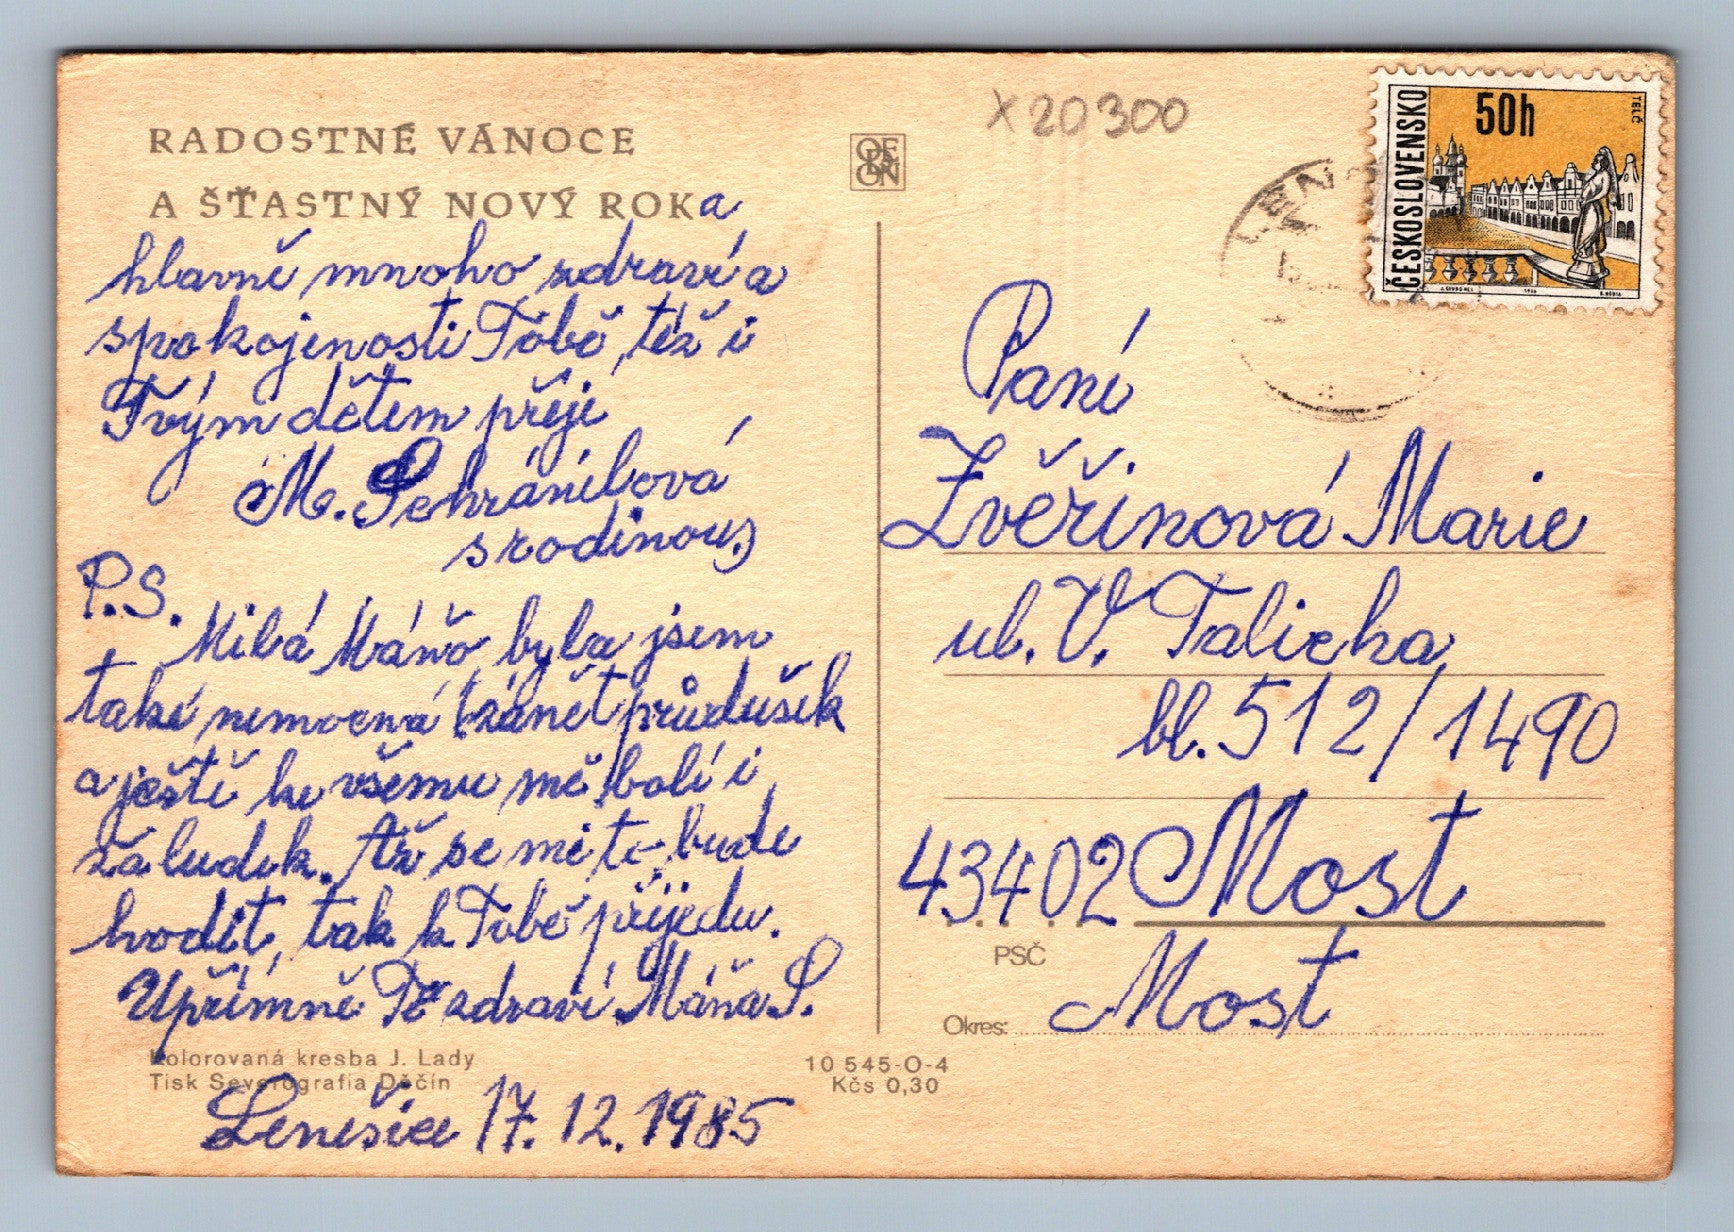 RADOSTNÉ VÁNOCE
A ŠŤASTNÝ NOVÝ ROK a
hlavně mnoho zdraví a
spokojenosti Tobě, též i
Tvým dětem přeje
M. Schránilová
s rodinou,
P.S.
Milá Máňo, byla jsem
také nemocná (zánět průdušek
a ještě ke všemu mě bolí i
žaludek. Až se mi to bude
hodit, tak k Tobě přijedu.
Upřímně Tě zdraví Máňa S.
Kolorovaná kresba J. Lady
Tisk Severografia Děčín
Lenešice 17. 12. 1985
10 545-O-4
Kčs 0,30
ORBIS
x 20300
ČESKOSLOVENSKO
50h
TELČ
Paní
Zvěřinová Marie
ul. V. Talicha
bl. 512/1490
43402 Most
PSČ
Okres: Most